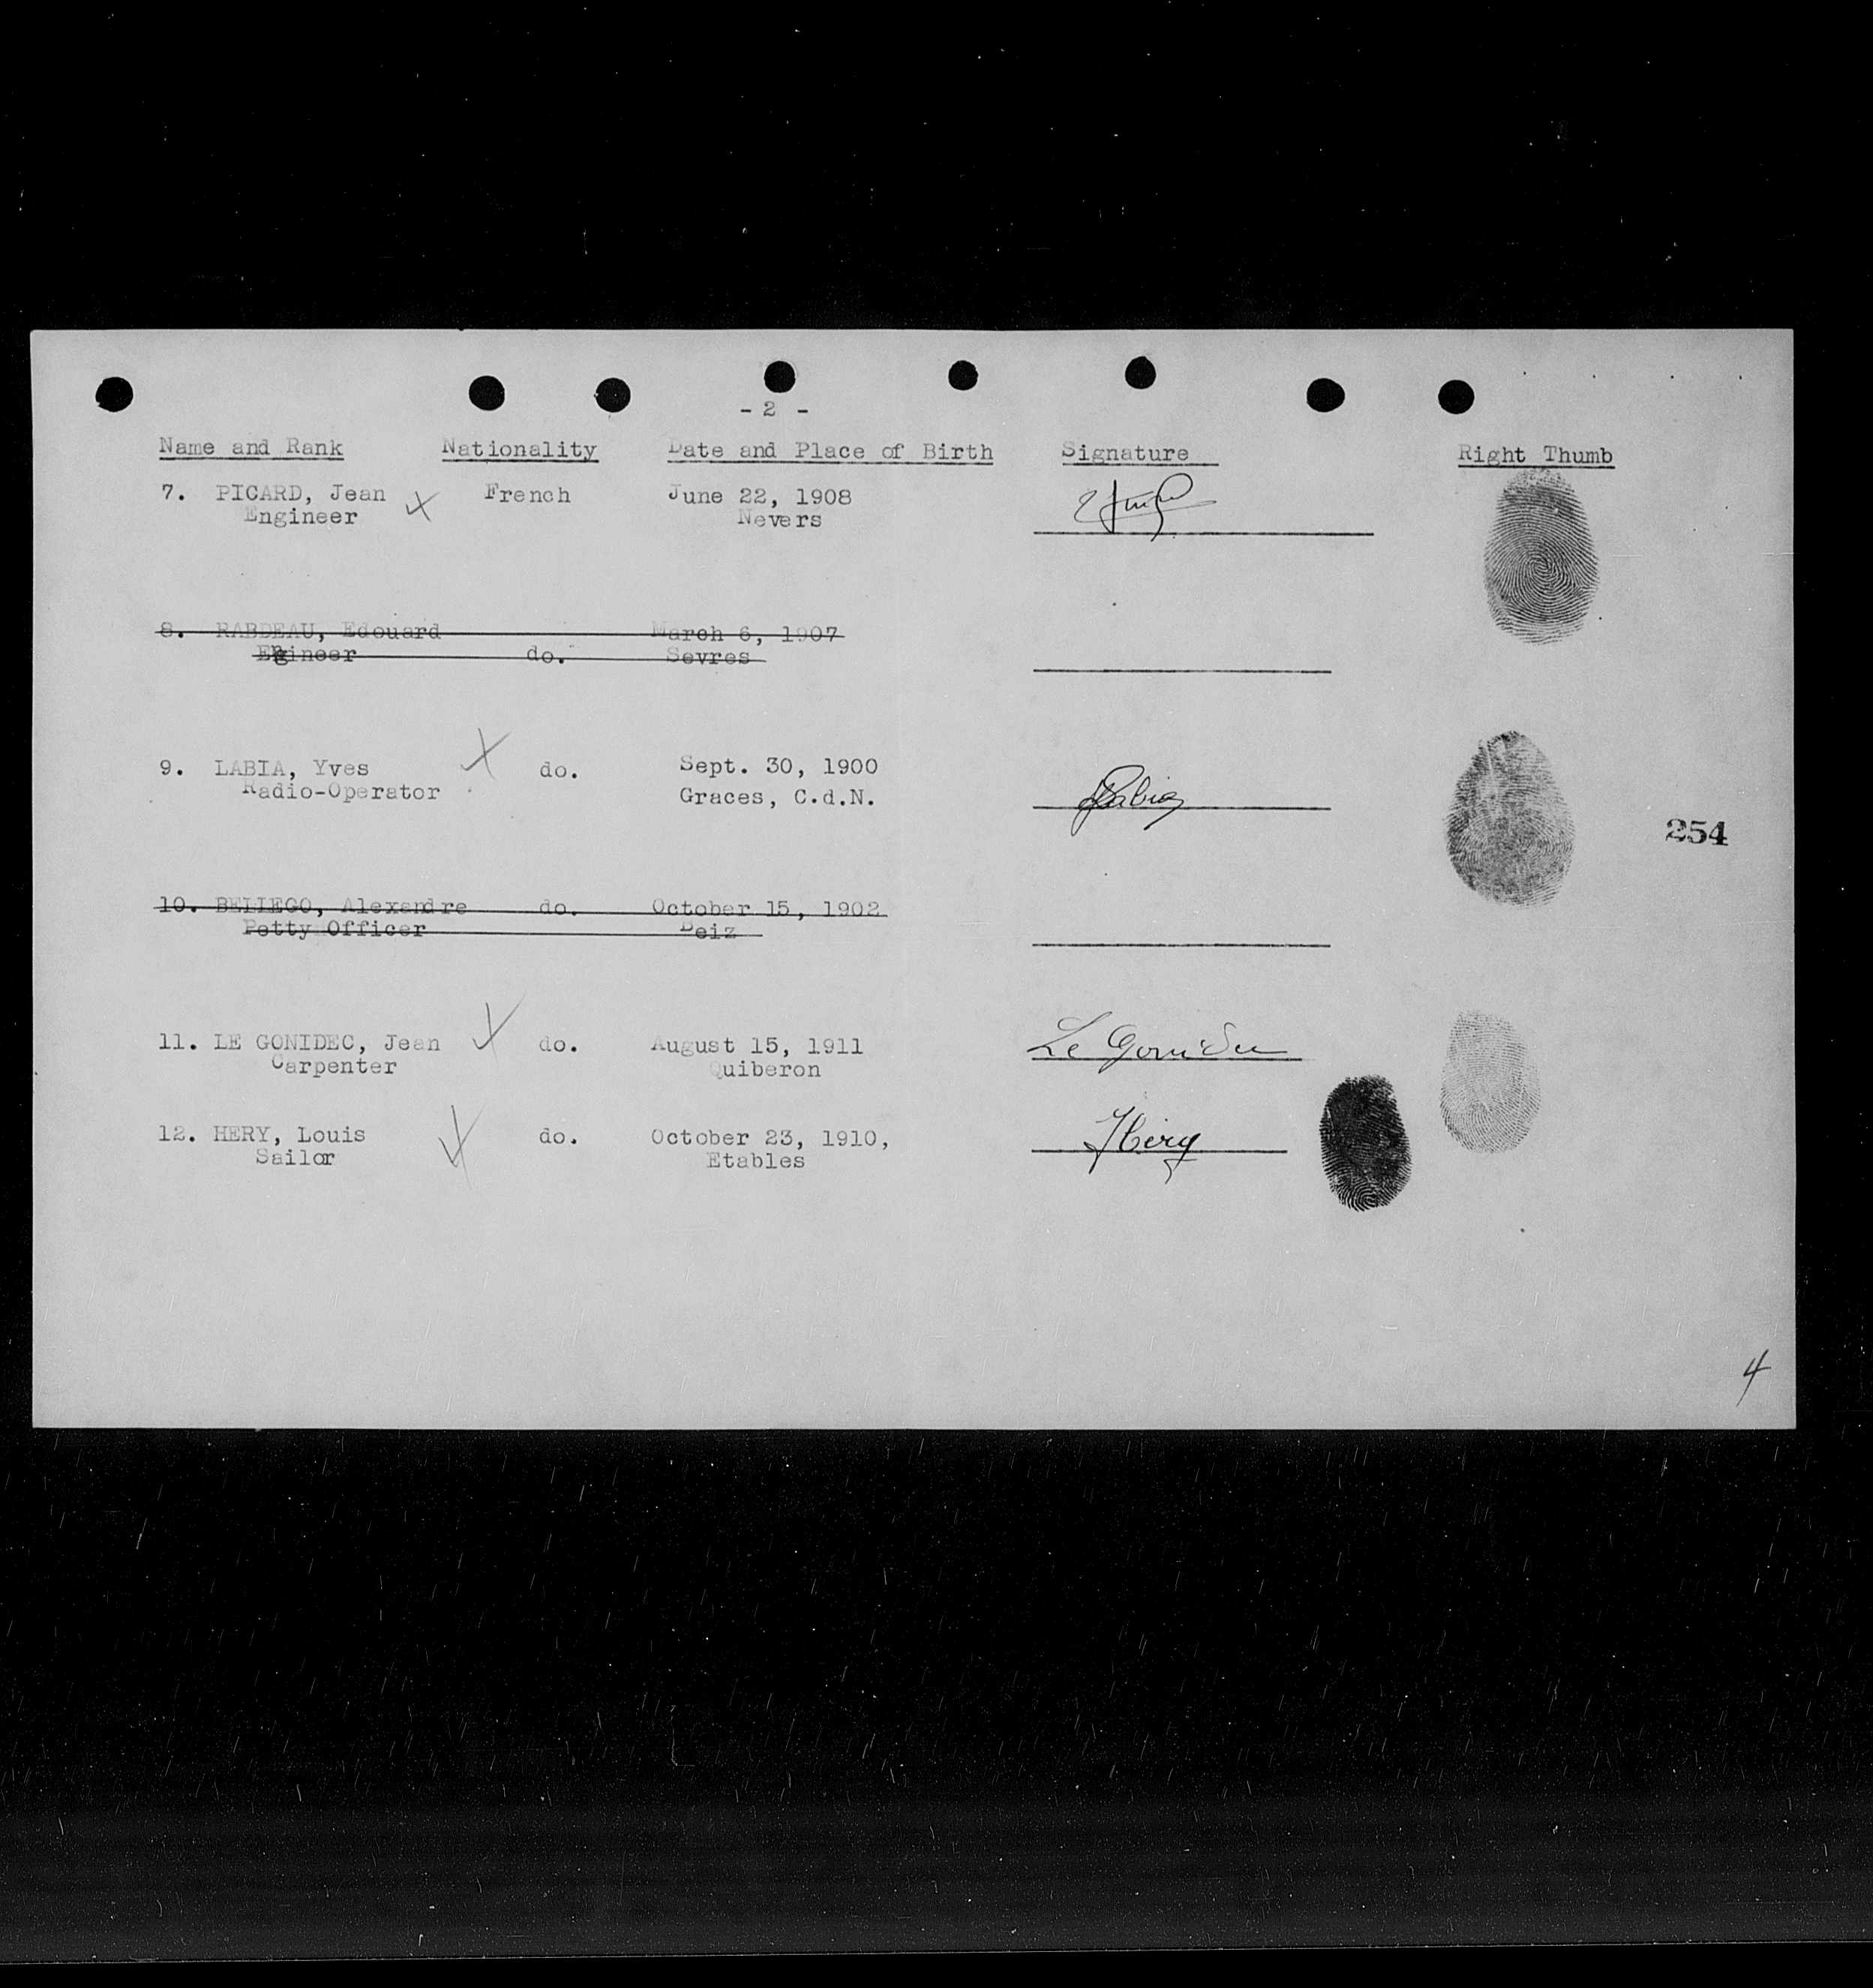 - 2 -
Name and Rank Nationality Date and Place of Birth Signature Right Thumb
7. PICARD, Jean French June 22, 1908
Engineer Nevers
8. RABDEAU, Edouard March 6, 1907
Engineer do. Sevres
9. LABIA, Yves do. Sept. 30, 1900
Radio-Operator Graces, C.d.N.
Labia
254
10. BELIEGO, Alexandre do. October 15, 1902
Petty Officer Deiz
11. LE GONIDEC, Jean do. August 15, 1911 Le Gonidec
Carpenter Quiberon
12. HERY, Louis do. October 23, 1910, Hery
Sailor Etables
4